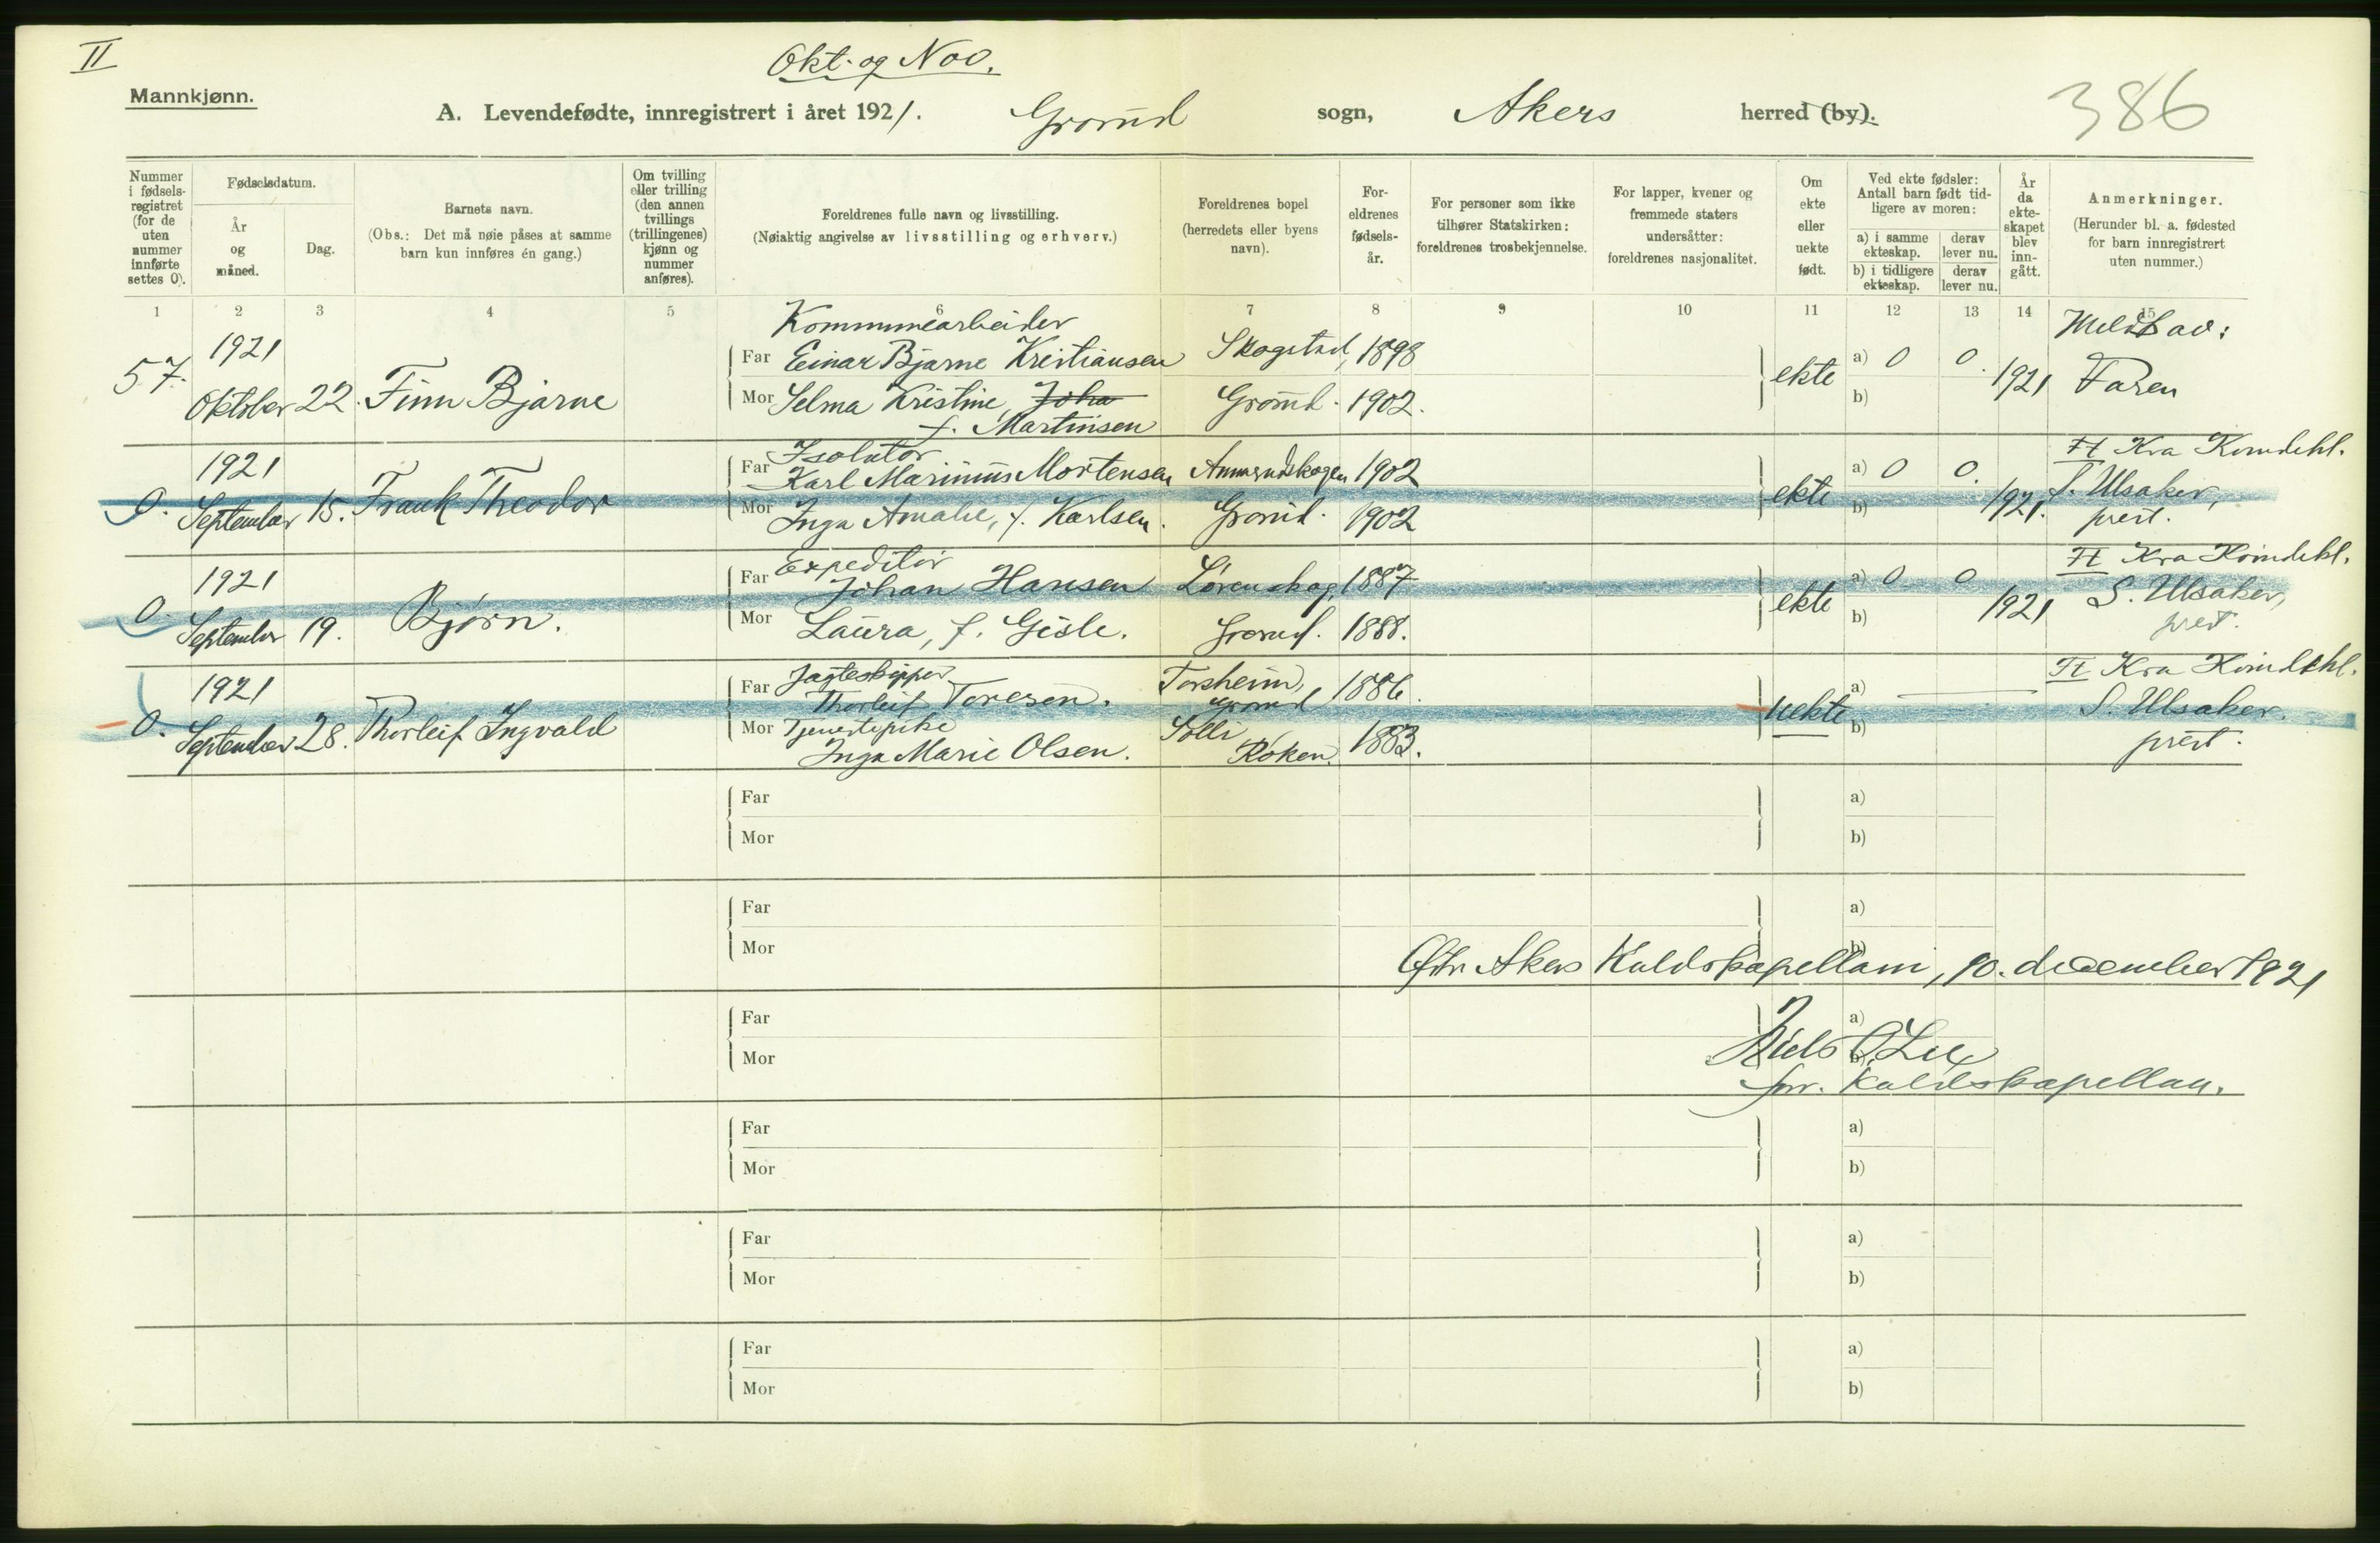 II
Okt. og Nov.
Mannkjønn.
A. Levendefødte, innregistrert i året 1921. Grorud sogn, Akers herred (by).
386
Nummer i fødsels-registret (for de uten nummer innførte settes 0).
Fødselsdatum.
År og måned.
Dag.
Barnets navn.
(Obs.: Det må nøie påses at samme barn kun innføres én gang.)
Om tvilling eller trilling (den annen tvillings (trillingenes) kjønn og nummer anføres).
Foreldrenes fulle navn og livsstilling.
(Nøiaktig angivelse av livsstilling og erhverv.)
Foreldrenes bopel (herredets eller byens navn).
For-eldrenes fødsels-år.
For personer som ikke tilhører Statskirken: foreldrenes trosbekjennelse.
For lapper, kvener og fremmede staters undersåtter: foreldrenes nasjonalitet.
Om ekte eller uekte født.
Ved ekte fødsler: Antall barn født tid-ligere av moren:
a) i samme ekteskap.
derav lever nu.
b) i tidligere ekteskap.
derav lever nu.
År da ekte-skapet blev inn-gått.
Anmerkninger.
(Herunder bl. a. fødested for barn innregistrert uten nummer.)
1 2 3 4 5 6 7 8 9 10 11 12 13 14 15
57. 1921 Oktober 22. Finn Bjarne
Kommunearbeider
Far Einar Bjarne Kristiansen Skogstad, 1898
Mor Selma Kristine Joha f. Martinsen Grorud. 1902.
ekte a) 0 0. b) 1921 Meldt av: Faren
0. 1921 September 15. Frank Theodor
Isolatør
Far Karl Marinius Mortensen Ammerudskogen 1902
Mor Inga Amalie, f. Karlsen. Grorud. 1902
ekte a) 0 0. b) 1921. Ft Kra Kvindekl.
S. Ulsaker, prest.
0. 1921 September 19. Bjørn.
Expeditør
Far Johan Hansen Lørenskog, 1887
Mor Laura, f. Gisle. Grorud. 1888.
ekte a) 0 0 b) 1921 Ft Kra Kvindekl.
S. Ulsaker, prest.
0. 1921 September 28. Thorleif Ingvald
Jagteskipper
Far Thorleif Toresen. Torsheim, Grorud 1886.
Mor Tjenestepike
Inga Marie Olsen. Solli Røken. 1883.
uekte a) b) Ft Kra Kvindekl.
S. Ulsaker. prest.
Far a)
Mor b)
Far a)
Mor b)
Østre Akers Kaldskapellani, 10. december 1921
Far a)
Niels O Lie
Mor b)
fnv. Kaldskapellan.
Far a)
Mor b)
Far a)
Mor b)
Far a)
Mor b)